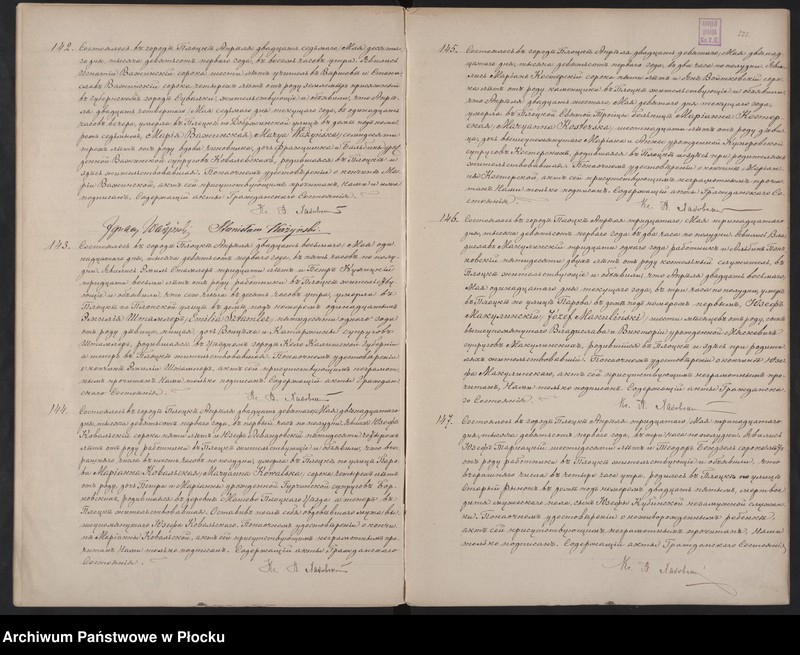 142. Состоялось въ городѣ Плоцкѣ Апрѣля двадцать седьмаго /Мая десята-
го дня, тысяча девятьсотъ перваго года, въ восемь часовъ утра. Явились
Игнатій Важинскій сорока шести лѣтъ учитель въ Варшавѣ и Стани-
славъ Важинскій сорока четырехъ лѣтъ отъ роду
въ губернскомъ городѣ Сувалки жительствующіе и объявили, что Апрѣ-
ля двадцать четвертаго /Мая седьмаго дня текущаго года, въ одинадцать
часовъ вечера, умерла въ Плоцкѣ по Добжинской улицѣ въ домѣ подъ номе-
ромъ седьмымъ, Марія Важинская /Marya Ważyńska/ семидесяти
трехъ лѣтъ отъ роду вдова
супруговъ Ковалевскихъ, родившаяся въ Плоцкѣ и
здѣсь жительствовавшая. Поналочномъ удостовѣреніи о кончинѣ Ма-
ріи Важинской, актъ сей присутствующимъ прочитанъ, Нами и ими
подписанъ. Содержащій акты Гражданскаго Состоянія.
Кс. В. Ласоцкій
Ignacy Ważyński Stanisław Ważyński
143. Состоялось въ городѣ Плоцкѣ Апрѣля двадцать восьмаго /Мая оди-
надцатаго дня, тысяча девятьсотъ перваго года, въ пять часовъ по полу-
дни. Явились Эмиль Штамлеръ тридцати лѣтъ и Петръ
тридцати восьми лѣтъ отъ роду работники въ Плоцкѣ жительству-
ющіе и объявили, что сего числа въ десять часовъ утра, умерла въ
Плоцкѣ по Плонской улицѣ въ домѣ подъ номеромъ одинадцатымъ
Эмилія Штамлеръ /Emilia Sztamler/ пятидесяти одного года
отъ роду, дѣвица, дочь и Катаржины супруговъ
Штамлеръ, родившаяся въ Уѣздномъ городѣ Коло Калишской Губерніи
а теперь въ Плоцкѣ жительствовавшая. Поналочномъ удостовѣреніи
о кончинѣ Эмиліи Штамлеръ, актъ сей присутствующимъ неграмот-
нымъ прочитанъ Нами только подписанъ. Содержащій акты Граждан-
скаго Состоянія.
Кс. В. Ласоцкій
144. Состоялось въ городѣ Плоцкѣ Апрѣля двадцать девятаго /Мая двѣнадцатаго
дня, тысяча девятьсотъ перваго года, въ первый часъ по полудни. Явились Іосифъ
Ковальскій сорока пяти лѣтъ и Іосифъ пятидесяти четырехъ
лѣтъ отъ роду работники въ Плоцкѣ жительствующіе и объявили, что вче-
рашняго числа въ шесть часовъ по полудни, умерла въ Плоцкѣ по улицѣ
Маріанна Ковальская /Maryanna Kowalska/, сорока четырехъ лѣтъ
отъ роду, дочь Петра и Маріанны урожденной супруговъ
родившаяся въ деревнѣ Плоцкаго Уѣзда а теперь въ
Плоцкѣ жительствовавшая. Оставивъ послѣ себя овдовѣвшаго мужа вы-
шеупомянутаго Іосифа Ковальскаго. Поналочномъ удостовѣреніи о кончи-
нѣ Маріанны Ковальской, актъ сей присутствующимъ неграмотнымъ про-
читанъ Нами только подписанъ. Содержащій акты Гражданскаго
Состоянія.
Кс. В. Ласоцкій
145. Состоялось въ городѣ Плоцкѣ Апрѣля двадцать девятаго /Мая двѣнад-
цатаго дня, тысяча девятьсотъ перваго года, въ два часа по полудни. Яви-
лись Маріанъ Костерскій сорока пяти лѣтъ и Янъ Войтковскій соро-
ка лѣтъ отъ роду каменщики въ Плоцкѣ жительствующіе и объявили,
что Апрѣля двадцать шестаго /Мая девятаго дня текущаго года,
умерла въ Плоцкой Святой Троицы больницѣ Маріанна Костер-
ская /Maryanna Kosterska/, шестнадцати лѣтъ отъ роду дѣви-
ца, дочь вышеупомянутаго Маріана и Анны урожденной
супруговъ Костерскихъ, родившаяся въ Плоцкѣ и здѣсь при родителяхъ
жительствовавшая. Поналочномъ удостовѣреніи о кончинѣ Маріан-
ны Костерской, актъ сей присутствующимъ неграмотнымъ прочи-
танъ Нами только подписанъ. Содержащій акты Гражданскаго Со-
стоянія.
Кс. В. Ласоцкій
146. Состоялось въ городѣ Плоцкѣ Апрѣля тридцатаго /Мая тринадцатаго
дня, тысяча девятьсотъ перваго года въ два часа по полудни. Явились Вла-
диславъ Макулинскій тридцати одного года работникъ и
пятидесяти двухъ лѣтъ отъ роду костельный служитель, въ
Плоцкѣ жительствующіе и объявили, что Апрѣля двадцать восьмаго
/Мая одинадцатаго дня/ текущаго года, въ три часа по полудни, умеръ
въ Плоцкѣ по улицѣ въ домѣ подъ номеромъ первымъ, Іосифъ
Макулинскій /Józef Makuliński/ шести мѣсяцевъ отъ роду, сынъ
вышеупомянутаго Владислава и Викторіи урожденной
супруговъ Макулинскихъ, родившійся въ Плоцкѣ и здѣсь при родите-
ляхъ жительствовавшій. Поналочномъ удостовѣреніи о кончинѣ Іоси-
фа Макулинскаго, актъ сей присутствующимъ неграмотнымъ про-
читанъ, Нами только подписанъ. Содержащій акты Гражданска-
го Состоянія.
Кс. В. Ласоцкій
147. Состоялось въ городѣ Плоцкѣ Апрѣля тридцатаго /Мая тринадцатаго
дня, тысяча девятьсотъ перваго года, въ три часа по полудни. Явились
Іосифъ шестидесяти лѣтъ и Теодоръ сорока лѣтъ
отъ роду работники въ Плоцкѣ жительствующіе и объявили, что
вчерашняго числа въ четыре часа утра, родилось въ Плоцкѣ по улицѣ
Старый рынокъ въ домѣ подъ номеромъ двадцать пятымъ, мертвое
дитя мужескаго пола, сынъ Іозефы Кулинской незамужней служан-
ки. Поналочномъ удостовѣреніи о мертворожденномъ ребенкѣ,
актъ сей присутствующимъ неграмотнымъ прочитанъ, Нами
только подписанъ. Содержащій акты Гражданскаго Состоянія.
Кс. В. Ласоцкій
Archiwum Państwowe w Płocku